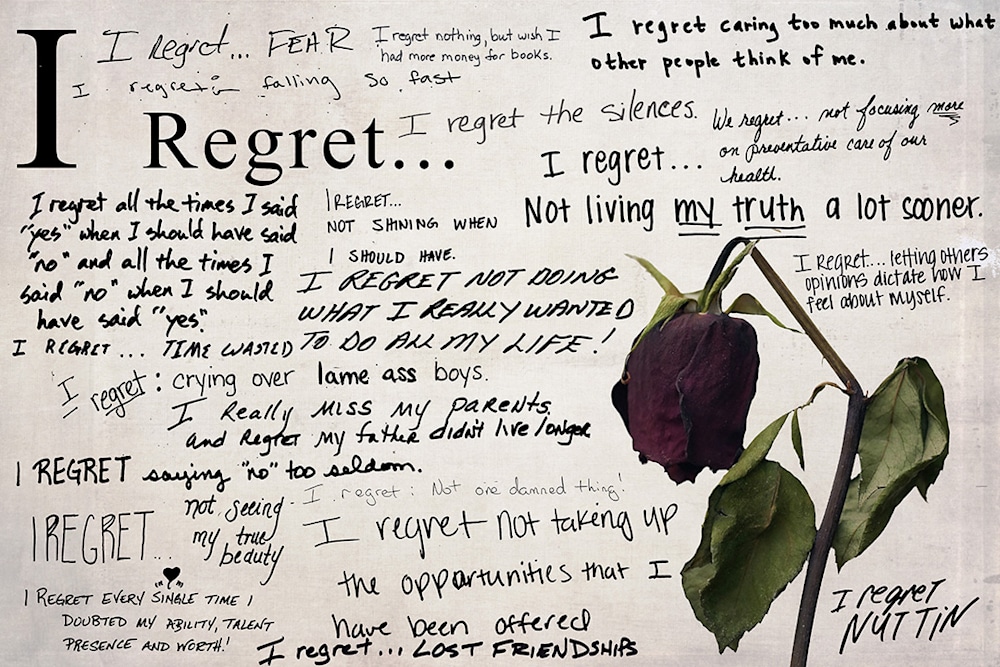 I Regret...
I Regret... FEAR
I regret nothing, but wish I
had more money for books.
I regret caring too much about what
other people think of me.
I regret falling so fast
I regret the silences.
We regret... not focusing more
on preventative care of our
health.
I regret...
Not living my truth a lot sooner.
I regret all the times I said
"yes" when I should have said
"no" and all the times I
said "no" when I should
have said "yes".
I REGRET...
NOT SHINING WHEN
I SHOULD HAVE.
I Regret... letting others
opinions dictate how I
feel about myself.
I REGRET NOT DOING
WHAT I REALLY WANTED
TO DO ALL MY LIFE!
I REGRET... TIME WASTED
I regret: crying over lame ass boys.
I Really MISS My PARENTS
and Regret my father didn't live longer
I REGRET saying "no" too seldom.
I regret: Not one damned thing!
I REGRET...
not seeing
my true
beauty
I regret not taking up
the opportunities that I
have been offered
I REGRET EVERY SINGLE TIME I
DOUBTED MY ABILITY, TALENT
PRESENCE AND WORTH!
I regret... LOST FRIENDSHIPS
I regret
NUTTIN